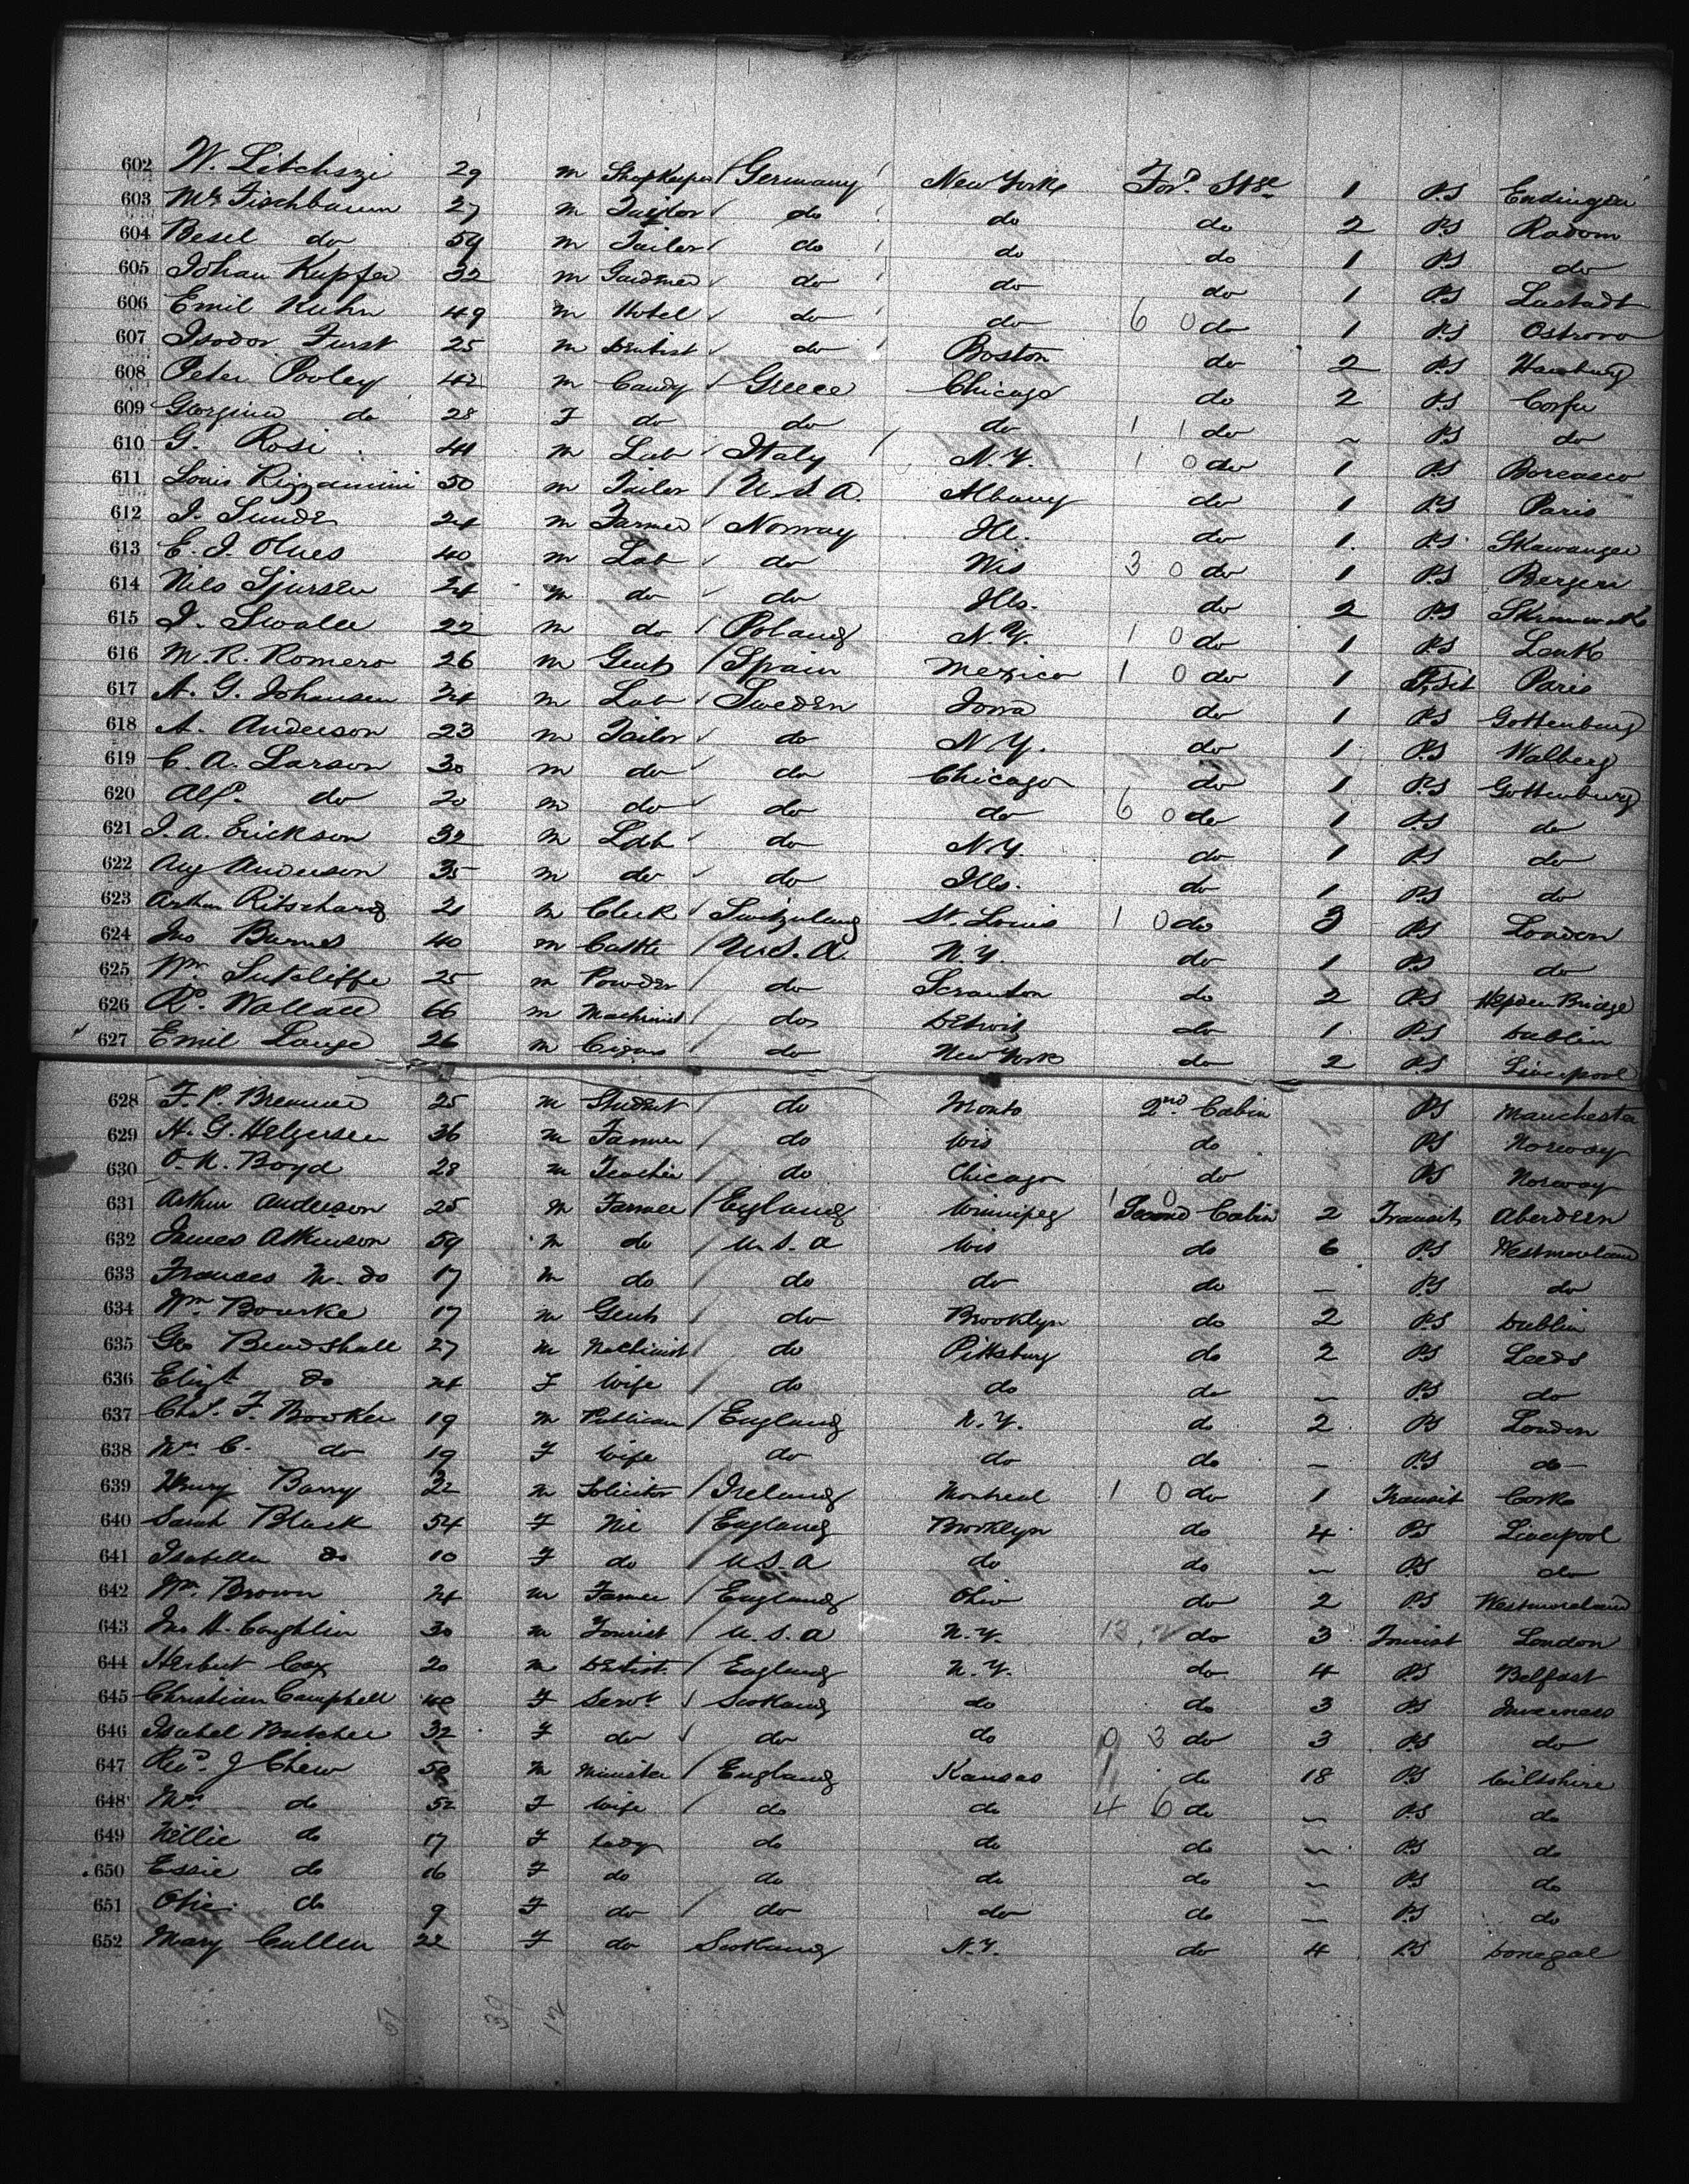 602 W. Litchszi 29 m Shopkeeper / Germany New York For.d St.ge 1 P.S Endingen
603 Mr. Fischbaum 27 m Tailor do do do 2 P.S Radom
604 Besel do 59 m Tailor do do do 1 P.S do
605 Johan Kupfer 32 m do do do 1 P.S Lustadt
606 Emil Kuhn 49 m Hotel do do 6 0 do 1 P.S Ostrovo
607 Isodor Furst 25 m Dentist do Boston do 2 P.S Hamburg
608 Peter Pooley 42 m Candy Greece Chicago do 2 P.S Corfu
609 Georgina do 28 F do do do 1 1 do ~ P.S do
610 G. Rosi 41 m Lab Italy N.Y. 1 0 do 1 P.S Boreasco
611 Louis Rizzamini 50 m Tailor / U.S.A. Albany do 1 P.S Paris
612 J. Sunde 24 m Farmer Norway Ill. do 1 P.S
613 E. J. 40 m Lab do Wis 3 0 do 1 P.S Bergen
614 Nils Sjursen 24 m do do Ills. do 2 P.S
615 J. 22 m do / Poland N.Y. 1 0 do 1 P.S
616 M. R. Romero 26 m Gent / Spain Mexico 1 0 do 1 Paris
617 A. G. Johansen 24 m Lab Sweden Iowa do 1 P.S Gottenburg
618 A. Anderson 23 m Tailor do N.Y. do 1 P.S Walberg
619 C. A. Larson 30 m do do Chicago do 1 P.S Gottenburg
620 Alf. do 20 m do do do 6 0 do 1 P.S do
621 J. A. Erickson 32 m Lab do N.Y. do 1 P.S do
622 Aug Anderson 35 m do do Ills. do 1 P.S do
623 Arthur Ritschard 21 m Clerk Switzerland St. Louis 1 0 do 3 P.S London
624 Jno Burnes 40 m / U.S.A. N.Y. do 1 P.S do
625 Wm. Sutcliffe 25 m Powder do Scranton do 2 P.S Hepden Bridge
626 Rd. Wallace 66 m Machinist do Detroit do 1 P.S Dublin
627 Emil Lange 26 m Cigars do New York do 2 P.S Liverpool
628 F. P. Brenner 25 m Student / do 2nd Cabin P.S Manchester
629 H. G. Helgersen 36 m Farmer / do Wis do P.S Norway
630 O. N. Boyd 28 m Teacher / do Chicago do P.S Norway
631 Arthur Anderson 25 m Farmer / England Winnipeg 1 0 Second Cabin 2 Transit Aberdeen
632 James Atkinson 59 m do / U.S.A Wis do 6 P.S Westmoreland
633 Frances N. do 17 m do / do do do ~ P.S do
634 Wm. Bourke 17 m Gent / do Brooklyn do 2 P.S Dublin
635 Geo Beadshall 27 m Machinist / do Pittsburg do 2 P.S Leeds
636 Elizt. do 24 F Wife / do do do ~ P.S do
637 Chas. F. Booker 19 m Publican / England N.Y. do 2 P.S London
638 Mrs. C. do 19 F Wife do do do ~ P.S do
639 Henry Barry 32 m Solicitor / Ireland Montreal 1 0 do 1 Transit Cork
640 Sarah Black 54 F Nil / England Brooklyn do 4 P.S Liverpool
641 Isabella do 10 F do / U.S.A do do ~ P.S do
642 Wm. Brown 24 m Farmer / England Ohio do 2 P.S Westmoreland
643 Jno H. Coughlin 30 m Tourist / U.S.A N.Y. do 3 Tourist London
644 Herbert Cox 20 m Dentist / England N.Y. do 4 P.S Belfast
645 Christian Campbell 40 F Servt. Scotland do do 3 P.S Inverness
646 Isabel Butcher 32 F do do do 0 3 do 3 P.S do
647 Revd. J Chew 50 m Minister / England Kansas do 18 P.S Wiltshire
648 Mrs. do 52 F Wife / do do 4 6 do ~ P.S do
649 Nellie do 17 F Lady do do do ~ P.S do
650 Essie do 16 F do do do do ~ P.S do
651 do 9 F do / do do do ~ P.S do
652 Mary Cullen 22 F do Scotland N.Y. do 4 P.S Donegal
51 39 12